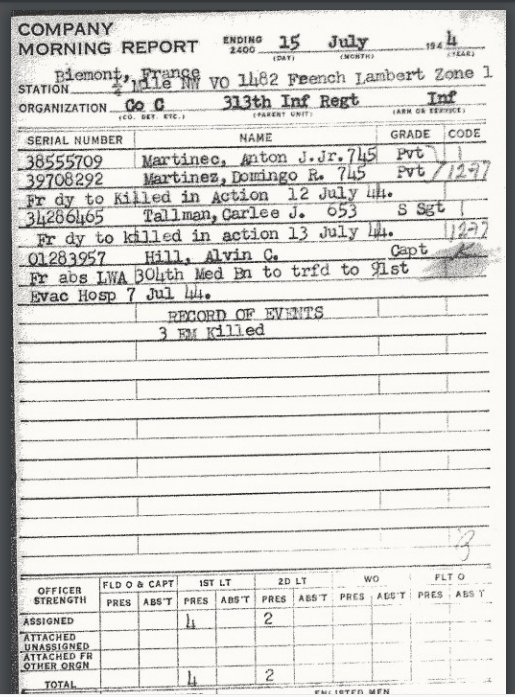 COMPANY
MORNING REPORT
ENDING 2400 15 July 1944
(DAY) (MONTH) (YEAR)
Biemont, France
STATION ½ Mile NW VO 1482 Feench Lambert Zone 1
ORGANIZATION Co C 313th Inf Regt Inf
(CO. DET. ETC.) (PARENT UNIT) (ARM OR SERVICE)
SERIAL NUMBER NAME GRADE CODE
38555709 Martinec, Anton J.Jr. 745 Pvt
39708292 Martinez, Domingo R. 745 Pvt
Fr dy to Killed in Action 12 July 44.
34286465 Tallman, Carlee J. 653 S Sgt
Fr dy to killed in action 13 July 44.
01283957 Hill, Alvin C. Capt
Fr abs LWA 304th Med Bn to trfd to 91st
Evac Hosp 7 Jul 44.
RECORD OF EVENTS
3 EM Killed
3
OFFICER STRENGTH FLD O & CAPT 1ST LT 2D LT WO FLT O
PRES ABS'T PRES ABS'T PRES ABS'T PRES ABS'T PRES ABS'T
ASSIGNED 4 2
ATTACHED UNASSIGNED
ATTACHED FR OTHER ORGN
TOTAL 4 2
ENLISTED MEN